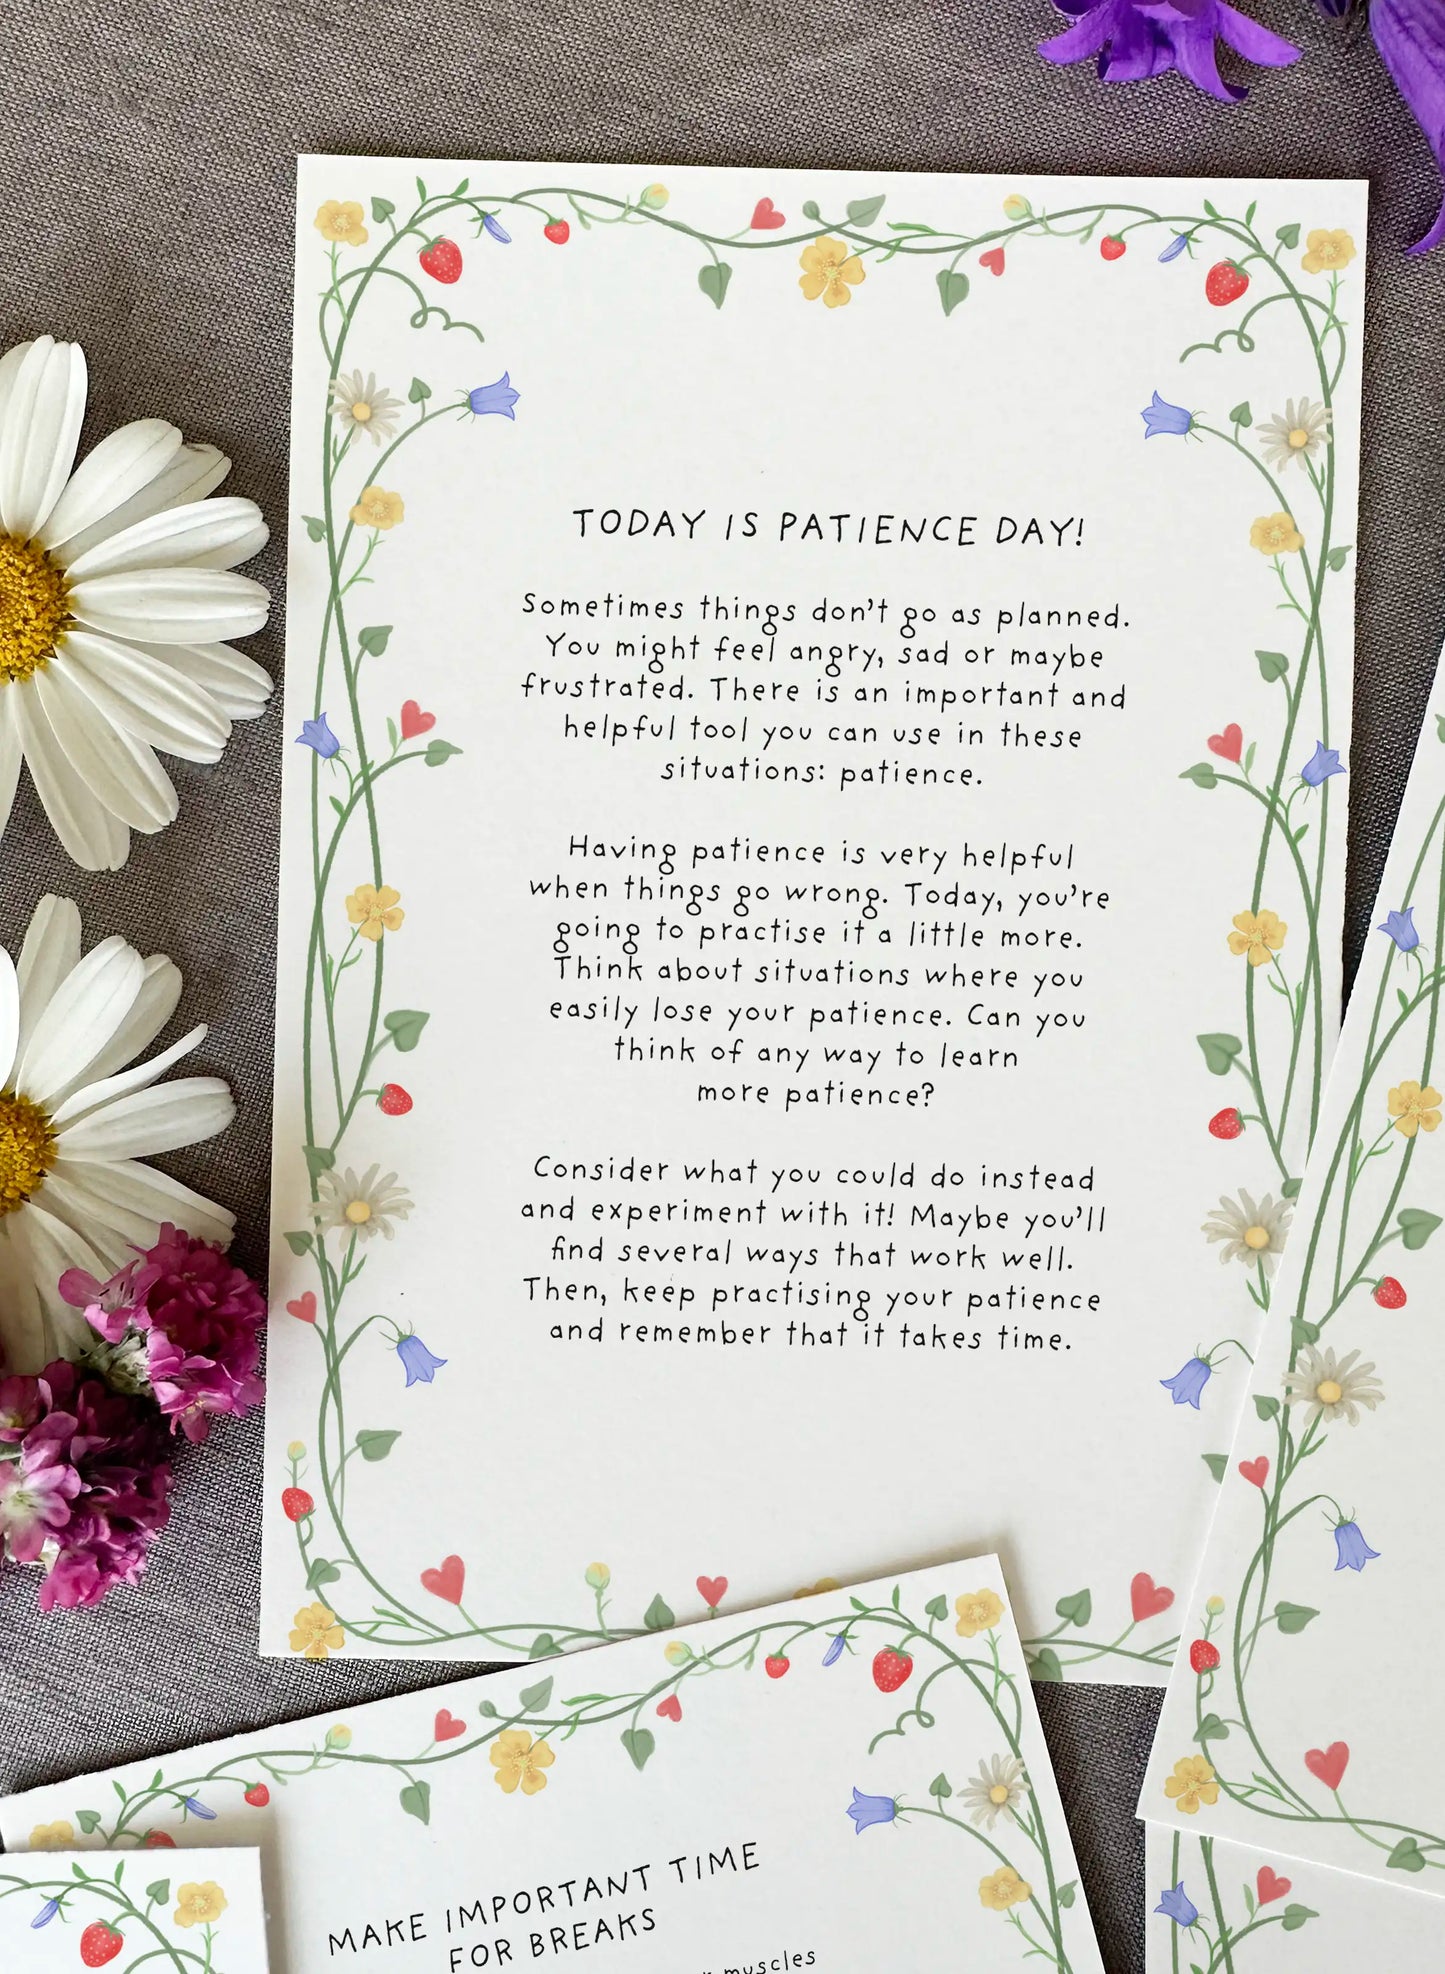 TODAY IS PATIENCE DAY!
Sometimes things don't go as planned.
You might feel angry, sad or maybe
frustrated. There is an important and
helpful tool you can use in these
situations: patience.
Having patience is very helpful
when things go wrong. Today, you're
going to practise it a little more.
Think about situations where you
easily lose your patience. Can you
think of any way to learn
more patience?
Consider what you could do instead
and experiment with it! Maybe you'll
find several ways that work well.
Then, keep practising your patience
and remember that it takes time.
MAKE IMPORTANT TIME
FOR BREAKS
muscles